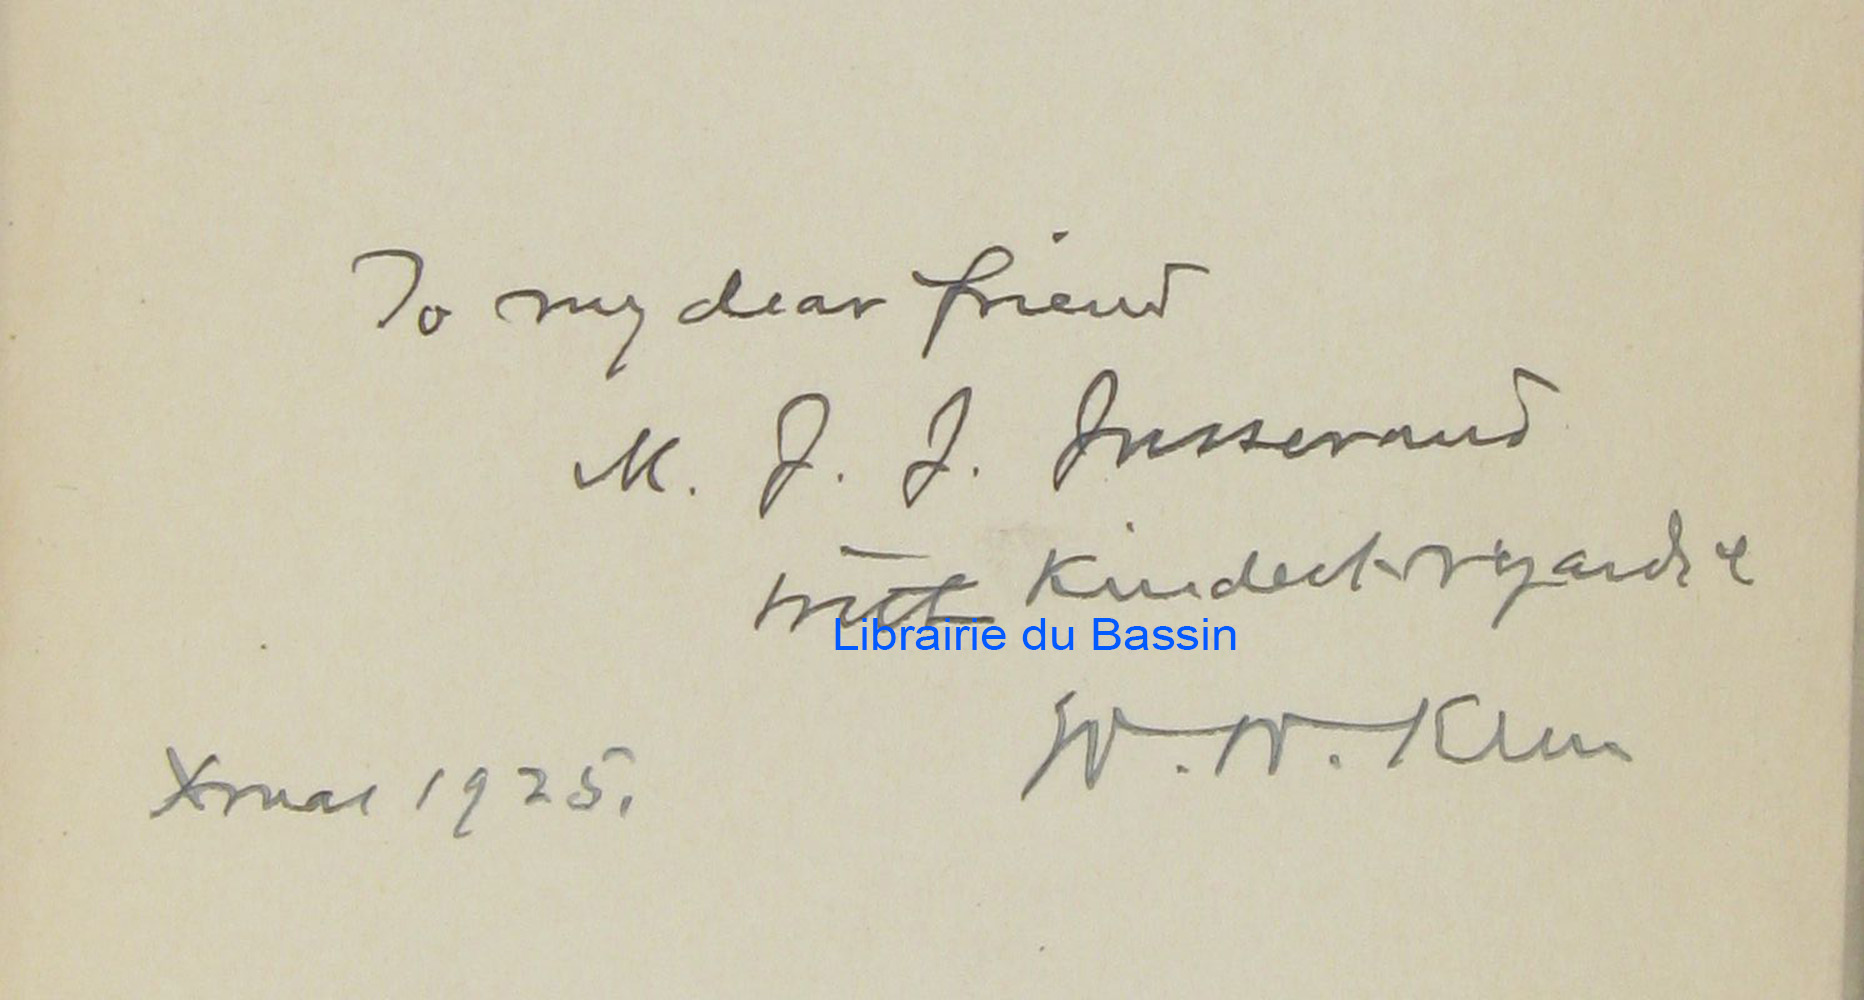 To my dear friend
M. J. J. Jusserand
with kindest regards &
Librairie du Bassin
W. W. Keen
Xmas 1925.